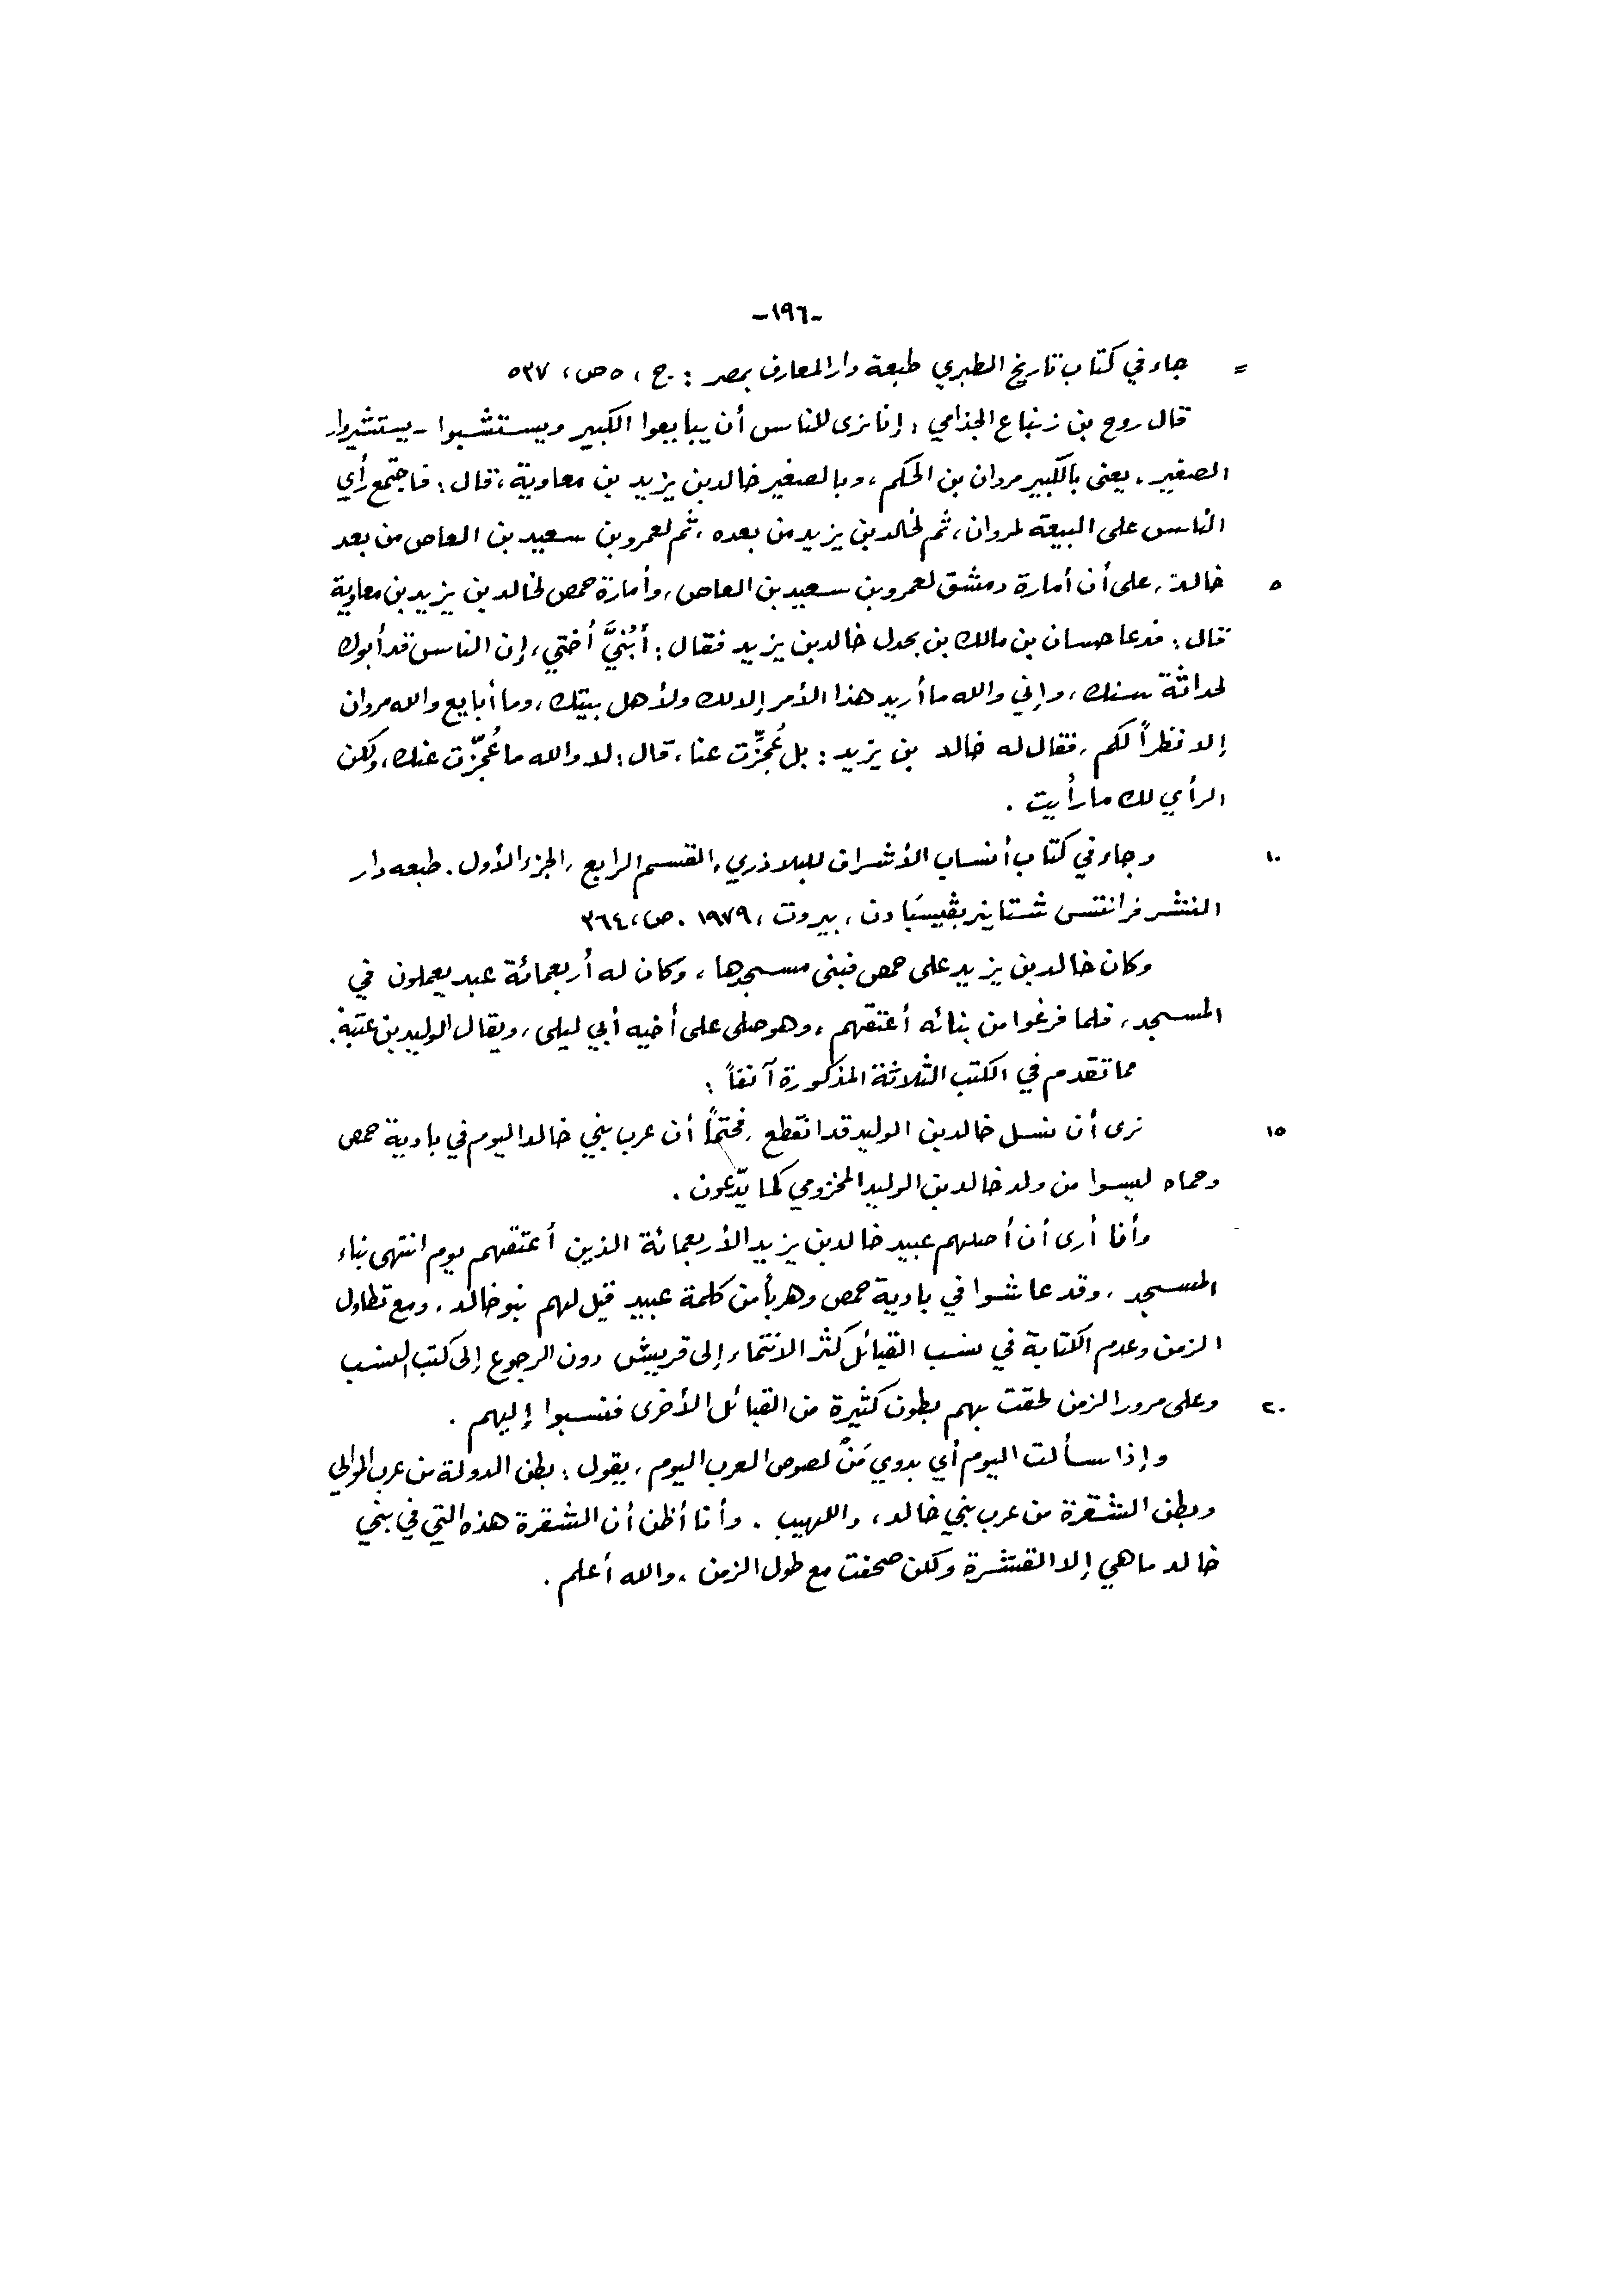 -١٩٦-
= جاء في كتاب تاريخ الطبري طبعة دار المعارف بمصر : ج ، ٥ ص ، ٥٣٧
قال روح بن زنباع الجذامي : إنا نرى للناس أن يبايعوا الكبير ويستشبوا - يستشيروا -
الصغير ، يعنى بالكبير مروان بن الحكم ، وبالصغير خالد بن يزيد بن معاوية ، قال : فاجتمع رأي
الناس على البيعة لمروان ، ثم لخالد بن يزيد من بعده ، ثم لعمرو بن سعيد بن العاص من بعد
٥ خالد ، على أن أمارة دمشق لعمرو بن سعيد بن العاص ، وأمارة حمص لخالد بن يزيد بن معاوية
قال : فدعا حسان بن مالك بن بحدل خالد بن يزيد فقال : أبُنَيَّ أختي ، إن الناس قد أبوك
لحداثة سنك ، وإني والله ما أريد هذا الأمر إلا لك ولأهل بيتك ، وما أبايع والله مروان
إلا نظراً لكم ، فقال له خالد بن يزيد : بل عُجِزّت عنا ، قال : لا والله ما عُجِزّت عنك ، ولكن
الرأي لك ما رأيت .
١٠ وجاء في كتاب أنساب الأشراف للبلاذري ، القسم الرابع ، الجزء الأول . طبعه دار
النشر فرانتس شتاينر بڤيسبَادن ، بيروت ، ١٩٧٩ . ص ، ٣٦٤
وكان خالد بن يزيد على حمص فبنى مسجدها ، وكان له أربعمائة عبد يعملون في
المسجد ، فلما فرغوا من بنائه أعتقهم ، وهو صلى على أخيه أبي ليلى ، ويقال الوليد بن عتبة .
مما تقدم في الكتب الثلاثة المذكورة آنفاً :
١٥ نرى أن نسل خالد بن الوليد قد انقطع ، فحتماً أن عرب بني خالد اليوم في بادية حمص
وحماه ليسوا من ولد خالد بن الوليد المخزومي كما يدّعون .
وأنا أرى أن أصلهم عبيد خالد بن يزيد الأربعمائة الذين أعتقهم يوم انتهى بناء
المسجد ، وقد عاشوا في بادية حمص وهرباً من كلمة عبيد قيل لهم بنو خالد ، ومع تطاول
الزمن وعدم الكتابة في نسب القبائل كثر الانتماء إلى قريش دون الرجوع إلى كتب النسب
٢٠ وعلى مرور الزمن لحقت بهم بطون كثيرة من القبائل الأخرى فنسبوا إليهم .
وإذا سألت اليوم أي بدوي مَنْ لصوص العرب اليوم ، يقول : بطن الدولة من عرب الموالي
وبطن الشقرة من عرب بني خالد ، واللهيب . وأنا أظن أن الشقرة هذه التي في بني
خالد ما هي إلا القشرة ولكن صحفت مع طول الزمن ، والله أعلم .